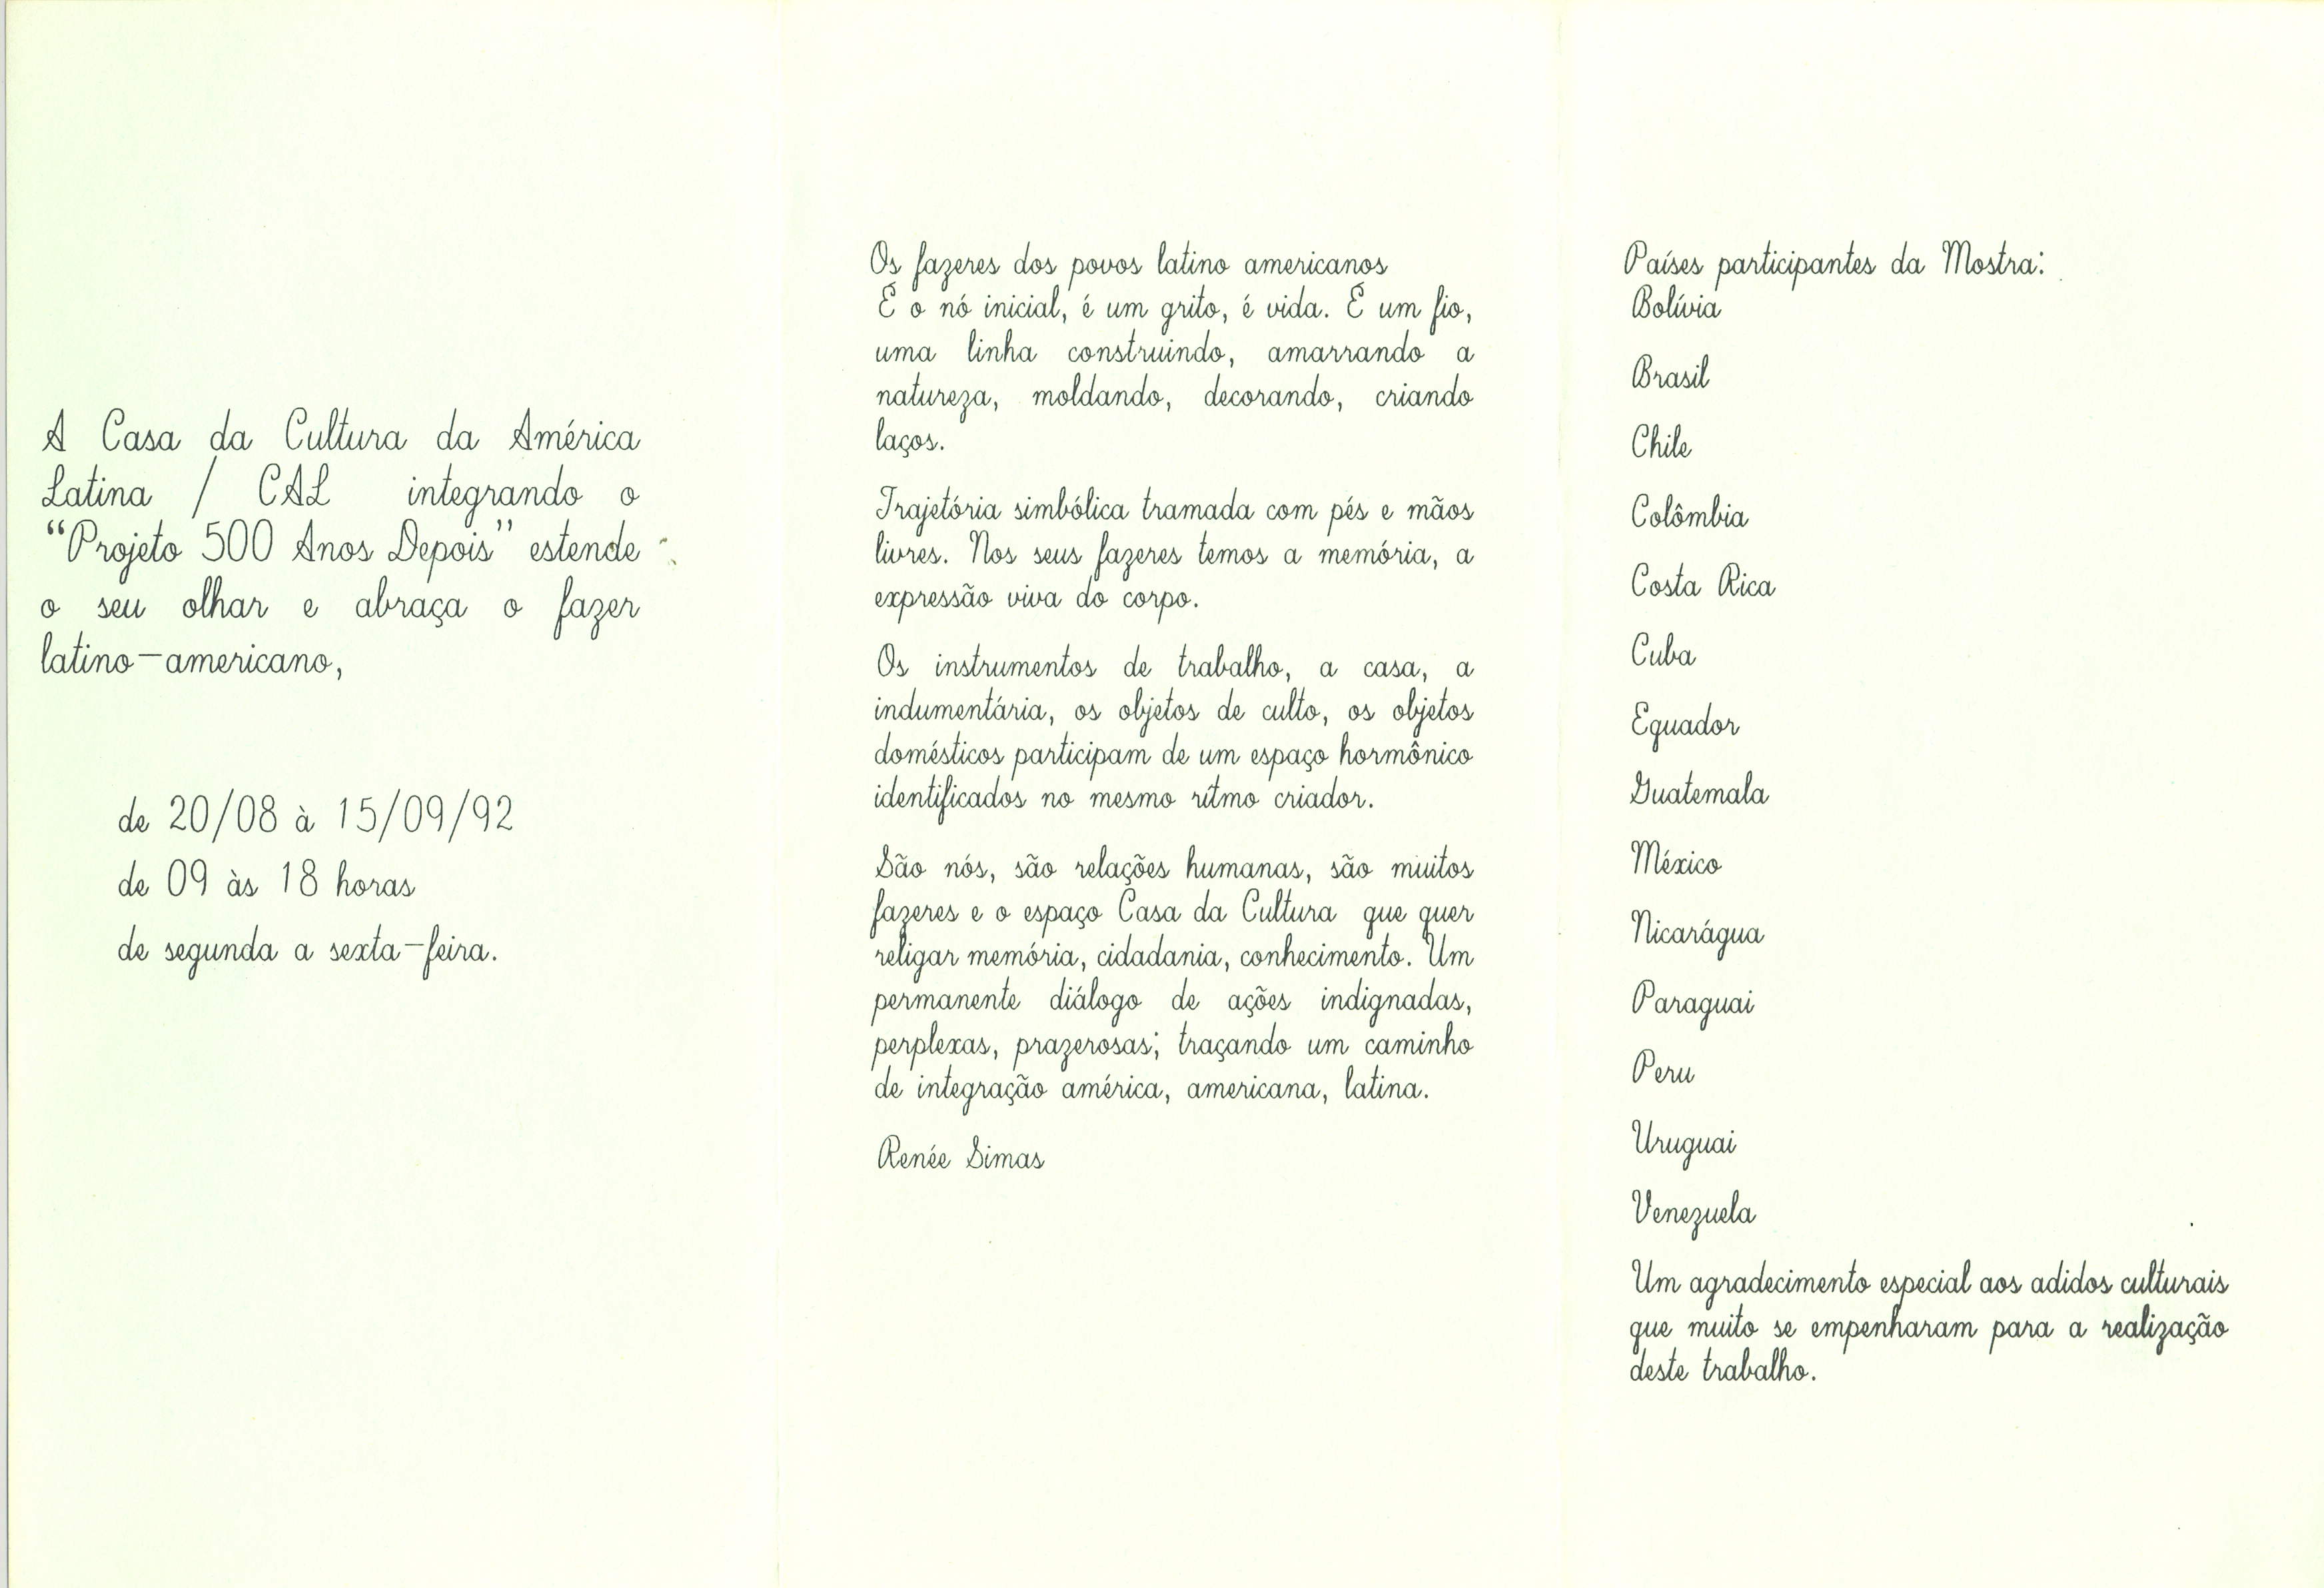 A Casa da Cultura da América
Latina / CAL integrando o
“Projeto 500 Anos Depois” estende
o seu olhar e abraça o fazer
latino-americano,
de 20/08 à 15/09/92
de 09 às 18 horas
de segunda a sexta-feira.
Os fazeres dos povos latino americanos
É o nó inicial, é um grito, é vida. É um fio,
uma linha construindo, amarrando a
natureza, moldando, decorando, criando
laços.
Trajetória simbólica tramada com pés e mãos
livres. Nos seus fazeres temos a memória, a
expressão viva do corpo.
Os instrumentos de trabalho, a casa, a
indumentária, os objetos de culto, os objetos
domésticos participam de um espaço hormônico
identificados no mesmo rítmo criador.
São nós, são relações humanas, são muitos
fazeres e o espaço Casa da Cultura que quer
religar memória, cidadania, conhecimento. Um
permanente diálogo de ações indignadas,
perplexas, prazerosas; traçando um caminho
de integração américa, americana, latina.
Renée Simas
Países participantes da Mostra:
Bolívia
Brasil
Chile
Colômbia
Costa Rica
Cuba
Equador
Guatemala
México
Nicarágua
Paraguai
Peru
Uruguai
Venezuela
Um agradecimento especial aos adidos culturais
que muito se empenharam para a realização
deste trabalho.